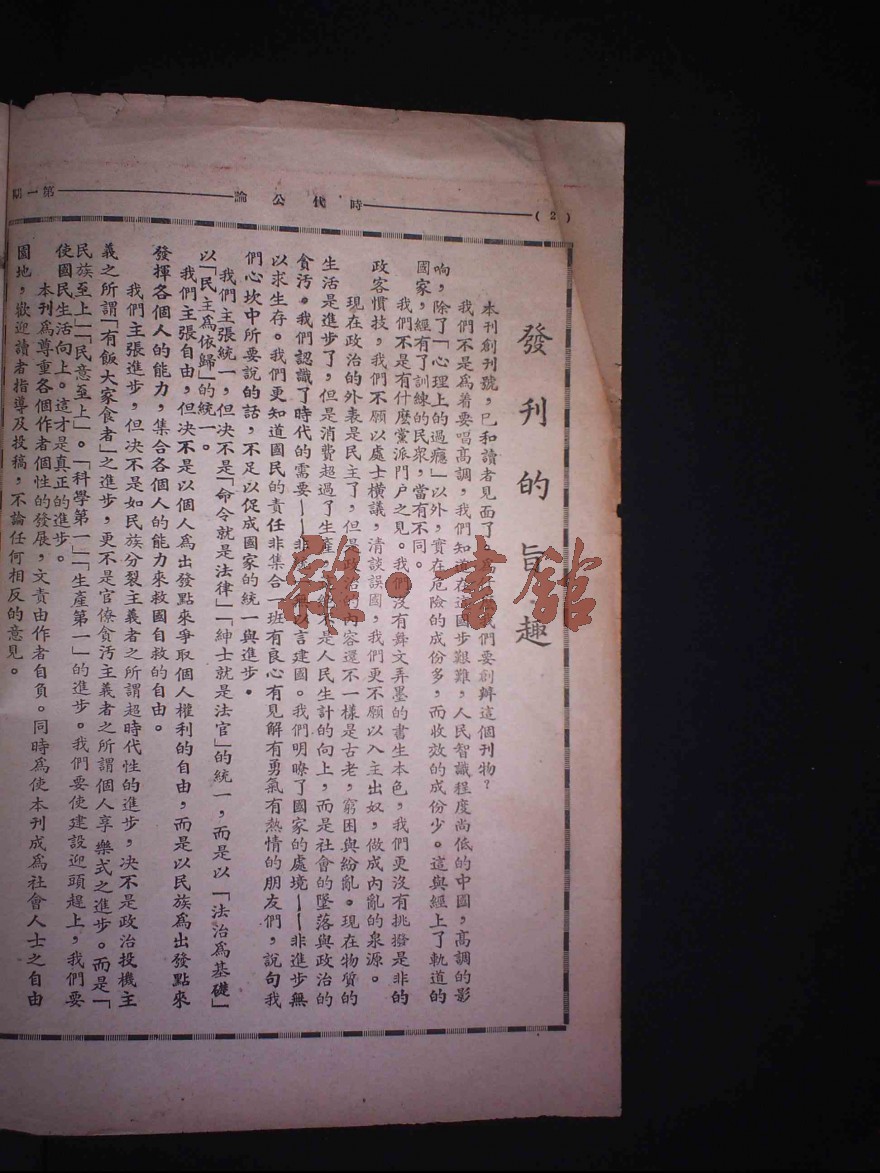 (2)
時代公論
第一期
發刊的旨趣
本刊創刊號，已和讀者見面了，為什我們要創辦這個刊物？
我們不是為着要唱高調，我們知道在這國步艱難，人民智識程度尚低的中國，高調的影
响，除了「心理上的過癮」以外，實在危險的成份多，而收效的成份少。這與經上了軌道的
國家，經有了訓練的民眾，當有不同。
我們不是有什麼黨派門户之見。我們沒有舞文弄墨的書生本色，我們更沒有挑撥是非的
政客慣技，我們不願以處士橫議，清談誤國，我們更不願以入主出奴，做成內亂的泉源。
現在政治的外表是民主了，但是政治的內容還不一樣是古老，窮困與紛亂。現在物質的
生活是進步了，但是消費超過了生產，不是人民生計的向上，而是社會的墜落與政治的
貪汚。我們認識了時代的需要——非統一無以言建國。我們明瞭了國家的處境——非進步無
以求生存。我們更知道國民的責任非集合一班有良心有見解有勇氣有熱情的朋友們，說句我
們心坎中所要說的話，不足以促成國家的統一與進步。
我們主張統一，但决不是「命令就是法律」「紳士就是法官」的統一，而是以「法治為基礎」
以「民主為依歸」的統一。
我們主張自由，但决不是以個人為出發點來爭取個人權利的自由，而是以民族為出發點來
發揮各個人的能力，集合各個人的能力來救國自救的自由。
我們主張進步，但决不是如民族分裂主義者之所謂超時代性的進步，决不是政治投機主
義之所謂「有飯大家食者」之進步，更不是官僚貪汚主義者之所謂個人享樂式之進步。而是「
民族至上」「民意至上」。「科學第一」「生產第一」的進步。我們要使建設迎頭趕上，我們要
使國民生活向上。這才是真正的進步。
本刊為尊重各個作者個性的發展，文責由作者自負。同時為使本刊成為社會人士之自由
園地，歡迎讀者指導及投稿，不論任何相反的意見。
雜·書館